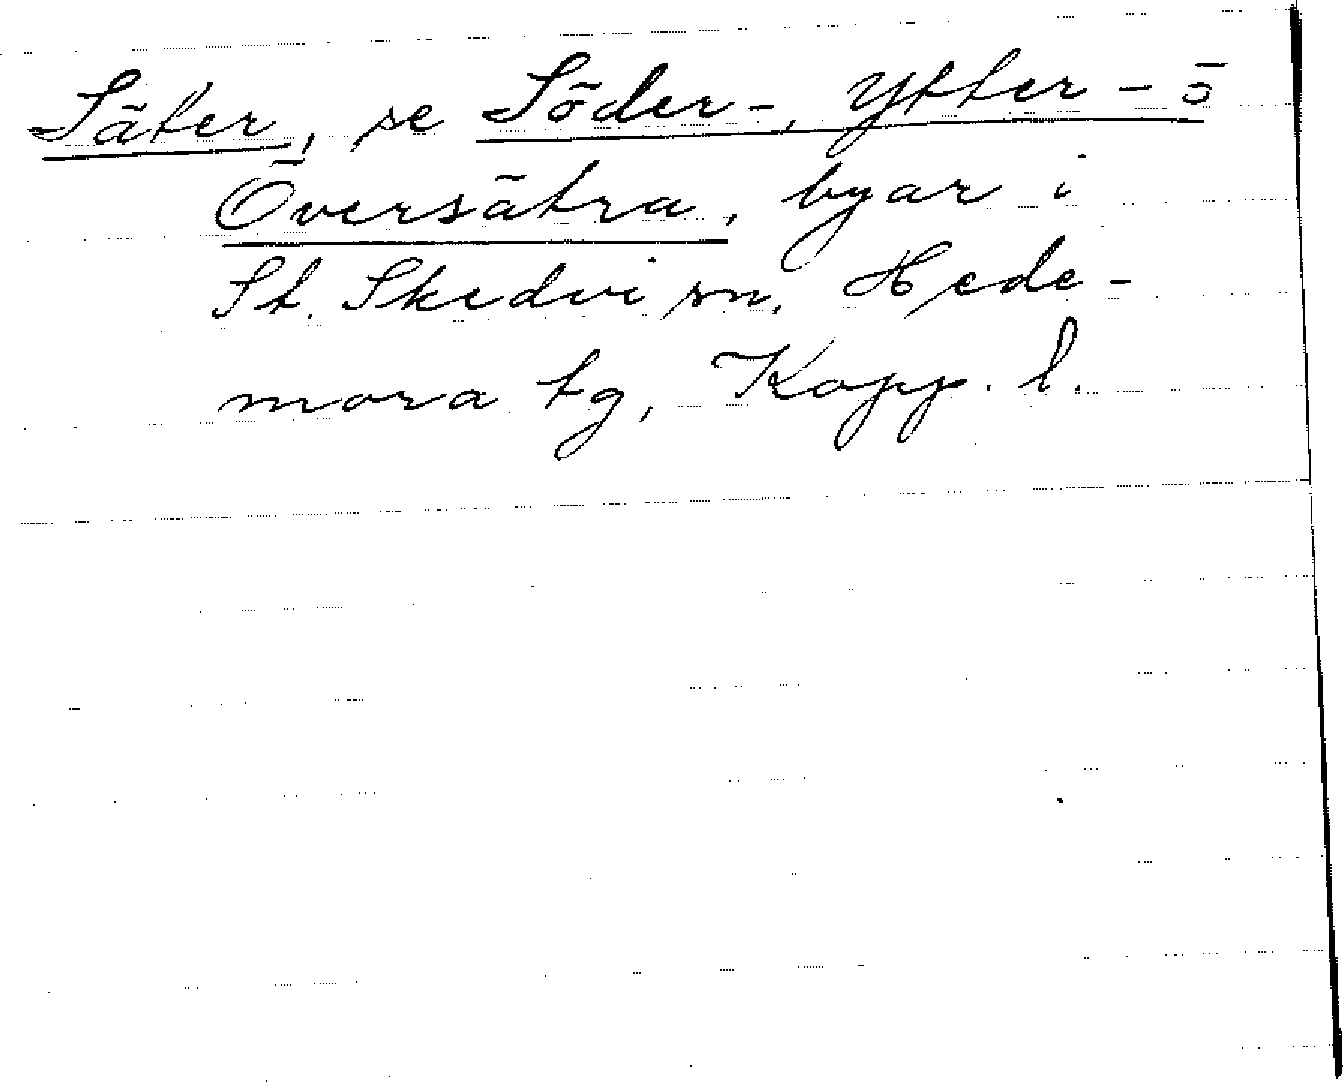 Säter, se Söder-, Ytter- o
Översätra, byar i
St. Skedvi sn, Hede-
mora tg, Kopp. l.